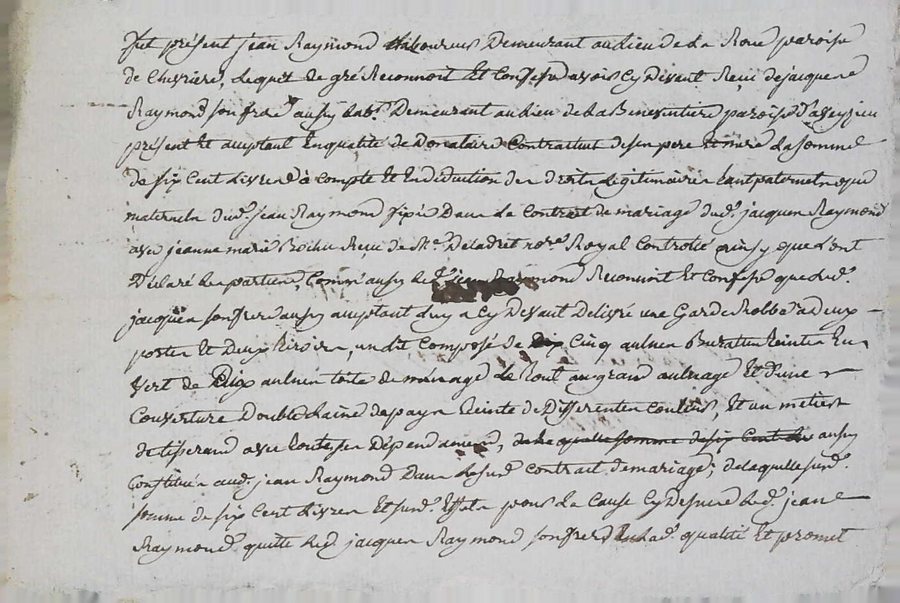 fut présent jean Raymond laboureur Demeurant au lieu de La Roue paroisse
de Chevriere, Lequel de gré Reconnoit Et Confesse avoir Cy Devant Reçu de jacques
Raymond son frere aussy lab.r Demeurant au lieu de La Beneventiere paroisse D'aveyzieu
présent Et acceptant En qualité de Donataire Contractuel de ses pere Et mere La somme
de six Cent Livres à Compte Et En déduction des droits Légitimaires tant paternels que
maternels dud. jean Raymond fixés Dans Le Contrat de mariage dud. jacques Raymond
avec jeanne marie Reçu de Me. no.re Royal Controllé ainsy que L'ont
Déclaré Les parties, Comm'aussy Led. jean Raymond Reconnoit Et Confesse que Led.
jacques son frere aussy acceptant Luy a Cy Devant Délivré une Garde Robbe à deux
portes Et Deux tiroirs, un Lit Composé de Cinq aulnes Burattes teintes En
Vert de Dix aulnes toile de ménage Le tout au grand aulnage Et d'une
Couverture Double Laine de pays teinte de Differentes Couleurs, Et un métier
de tisserand avec toutes ses Dépendances, de la quelle somme de six Cent Liv aussy
Constitués aud. jean Raymond Dans Le susd. Contrat de mariage; de laquelle susd.
somme de six Cent Livres Et susd. Effets pour La Cause Cy Dessus Led. jean
Raymond quitte Led. jacques Raymond son frere En Lad. qualité Et promet